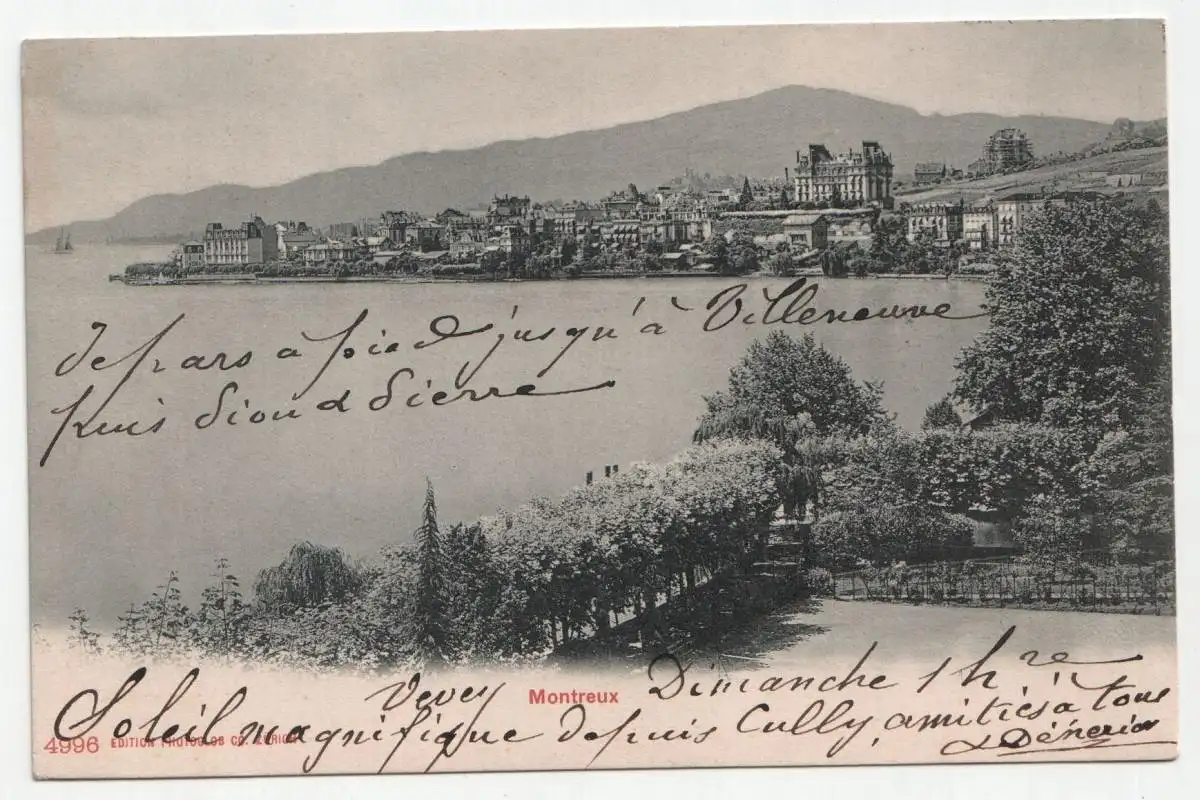 Je pars à pied j'usqu'à Villeneuve
puis Sion & Sierre
Vevey Montreux Dimanche 1 h re
Soleil magnifique depuis Cully, amitiés à tous
4996 EDITION PHOTOGLOB CO. ZÜRICH